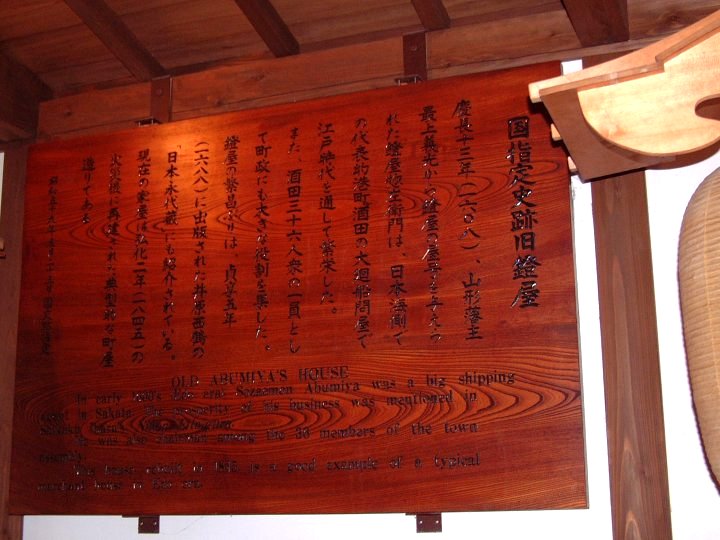 国指定史跡旧鐙屋
慶長十三年(一六〇八)、山形藩主
最上義光から鐙屋の屋号を与えら
れた鐙屋惣左衛門は、日本海側で
の代表的港町酒田の大廻船問屋で
江戸時代を通して繁栄した。
また、酒田三十六人衆の一員とし
て町政にも大きな役割を果した。
鐙屋の繁昌ぶりは、貞享五年
(一六八八)に出版された井原西鶴の
「日本永代蔵」にも紹介されている。
現在の家屋は弘化二年(一八四五)の
大火後に再建された典型的な町屋
造りである
OLD ABUMIYA'S HOUSE
In early 1600's Sozaemon Abumiya was a big shipping
agent in Sakata. The prosperity of his business was mentioned in
He was also chairman among the 36 members of the town
assembly.
This house rebuilt in 1845 is a good example of a typical
merchant house